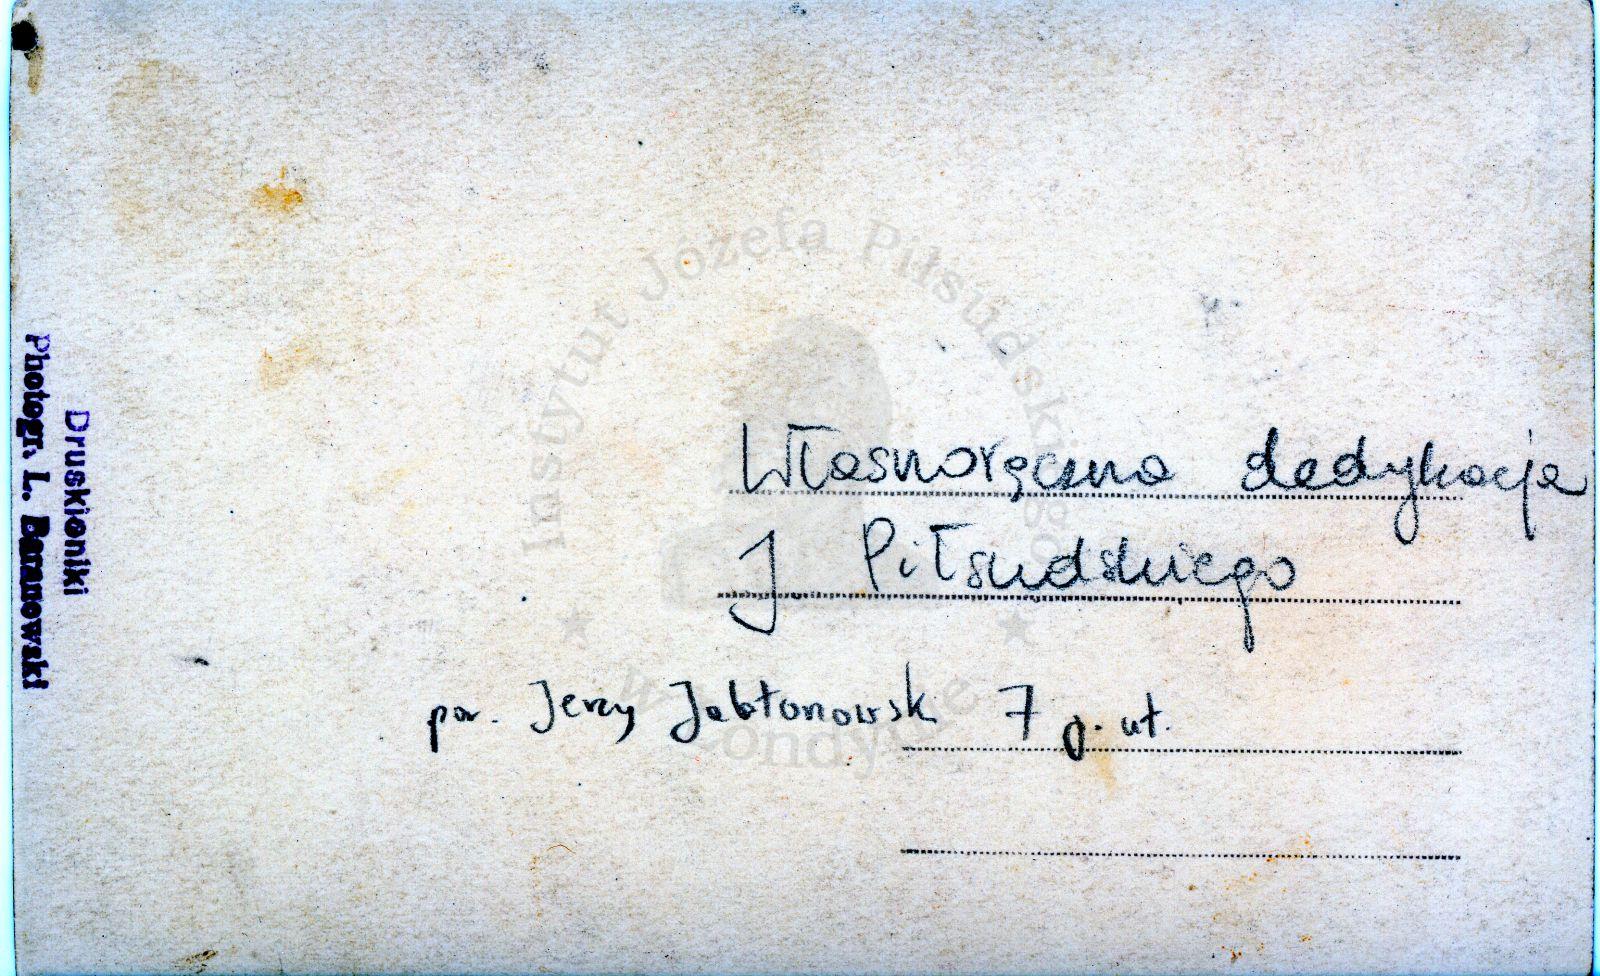 Własnoręczna dedykacja
J Piłsudskiego
por. Jerzy Jabłonowski 7 p. uł.
Druskieniki
Photogr. L. Baranowski
Instytut Józefa Piłsudskiego
w Londynie